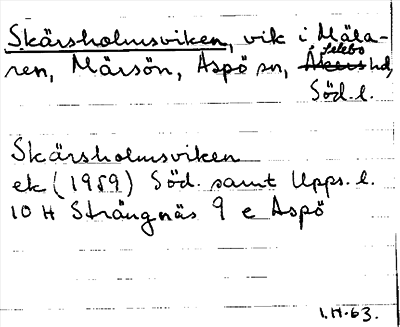 Skärsholmsviken, vik i Mäla-
ren, Märsön, Aspö sn, Åkers hd,
Selebo
Söd.l.
Skärsholmsviken
ek (1959) Söd. samt Upps. l.
10 H Strängnäs 9 e Aspö
I.H.63.